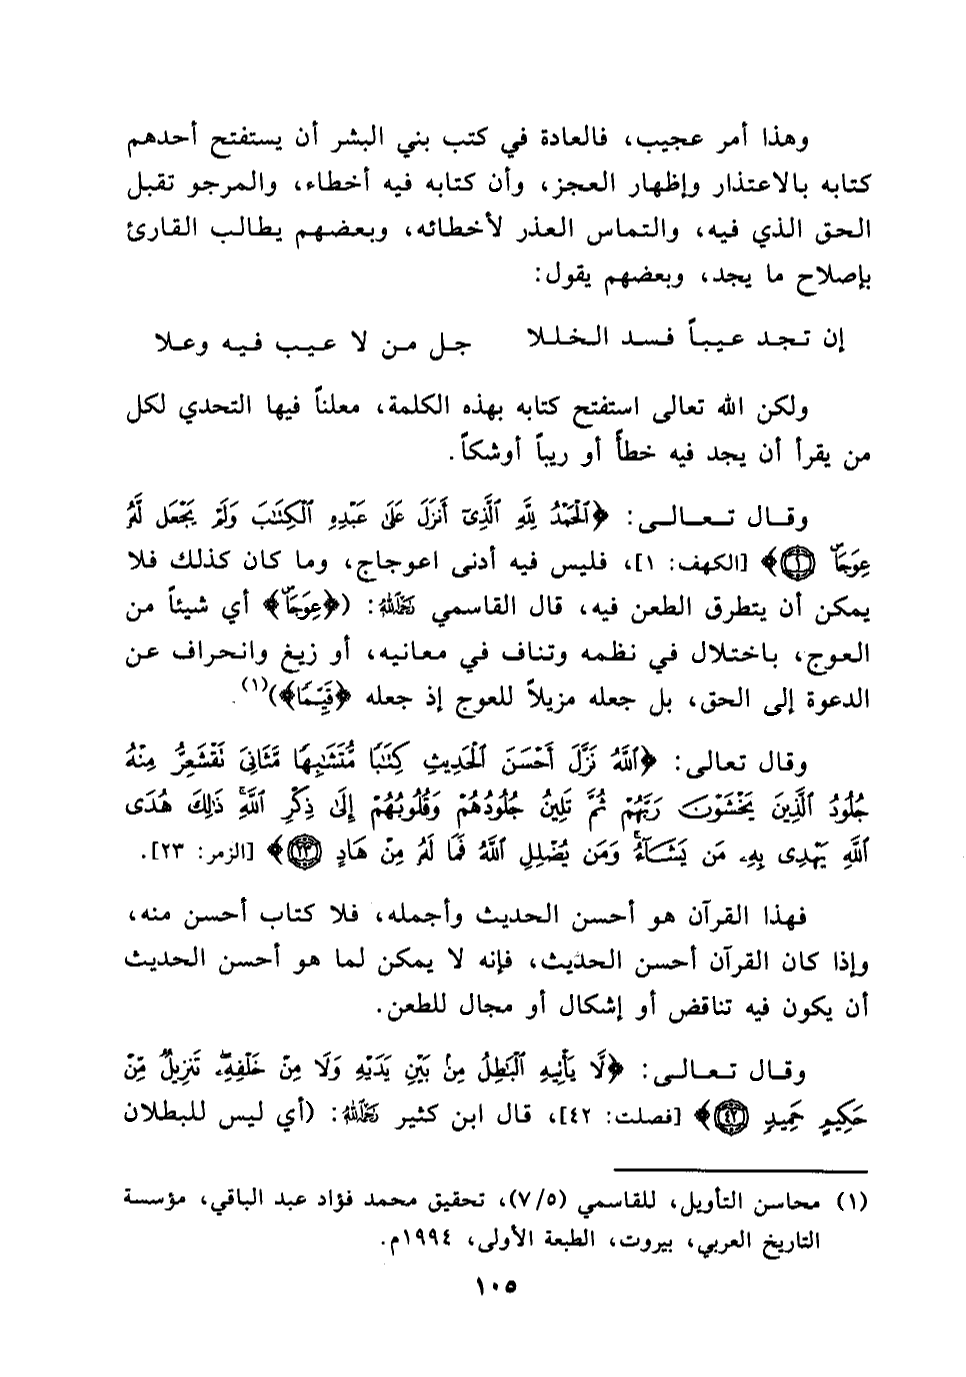 وهذا أمر عجيب، فالعادة في كتب بني البشر أن يستفتح أحدهم
كتابه بالاعتذار وإظهار العجز، وأن كتابه فيه أخطاء، والمرجو تقبل
الحق الذي فيه، والتماس العذر لأخطائه، وبعضهم يطالب القارئ
بإصلاح ما يجد، وبعضهم يقول:
إن تجد عيباً فسد الخللا جل من لا عيب فيه وعلا
ولكن الله تعالى استفتح كتابه بهذه الكلمة، معلناً فيها التحدي لكل
من يقرأ أن يجد فيه خطأ أو ريباً أوشكاً.
وقال تعالى: ﴿ٱلْحَمْدُ لِلَّهِ ٱلَّذِىٓ أَنزَلَ عَلَىٰ عَبْدِهِ ٱلْكِتَٰبَ وَلَمْ يَجْعَل لَّهُۥ
عِوَجَاۜ ١﴾ [الكهف: ١]، فليس فيه أدنى اعوجاج، وما كان كذلك فلا
يمكن أن يتطرق الطعن فيه، قال القاسمي رحمه الله: (﴿عِوَجَاۜ﴾ أي شيئاً من
العوج، باختلال في نظمه وتناف في معانيه، أو زيغ وانحراف عن
الدعوة إلى الحق، بل جعله مزيلاً للعوج إذ جعله ﴿قَيِّمًا﴾)(١).
وقال تعالى: ﴿ٱللَّهُ نَزَّلَ أَحْسَنَ ٱلْحَدِيثِ كِتَٰبًا مُّتَشَٰبِهًا مَّثَانِىَ تَقْشَعِرُّ مِنْهُ
جُلُودُ ٱلَّذِينَ يَخْشَوْنَ رَبَّهُمْ ثُمَّ تَلِينُ جُلُودُهُمْ وَقُلُوبُهُمْ إِلَىٰ ذِكْرِ ٱللَّهِۚ ذَٰلِكَ هُدَى
ٱللَّهِ يَهْدِى بِهِۦ مَن يَشَآءُۚ وَمَن يُضْلِلِ ٱللَّهُ فَمَا لَهُۥ مِنْ هَادٍ ٢٣﴾ [الزمر: ٢٣].
فهذا القرآن هو أحسن الحديث وأجمله، فلا كتاب أحسن منه،
وإذا كان القرآن أحسن الحديث، فإنه لا يمكن لما هو أحسن الحديث
أن يكون فيه تناقض أو إشكال أو مجال للطعن.
وقال تعالى: ﴿لَّا يَأْتِيهِ ٱلْبَٰطِلُ مِنۢ بَيْنِ يَدَيْهِ وَلَا مِنْ خَلْفِهِۦۖ تَنزِيلٌ مِّنْ
حَكِيمٍ حَمِيدٍ ٤٢﴾ [فصلت: ٤٢]، قال ابن كثير رحمه الله: (أي ليس للبطلان
(١) محاسن التأويل، للقاسمي (٧/٥)، تحقيق محمد فؤاد عبد الباقي، مؤسسة
التاريخ العربي، بيروت، الطبعة الأولى، ١٩٩٤م.
١٠٥